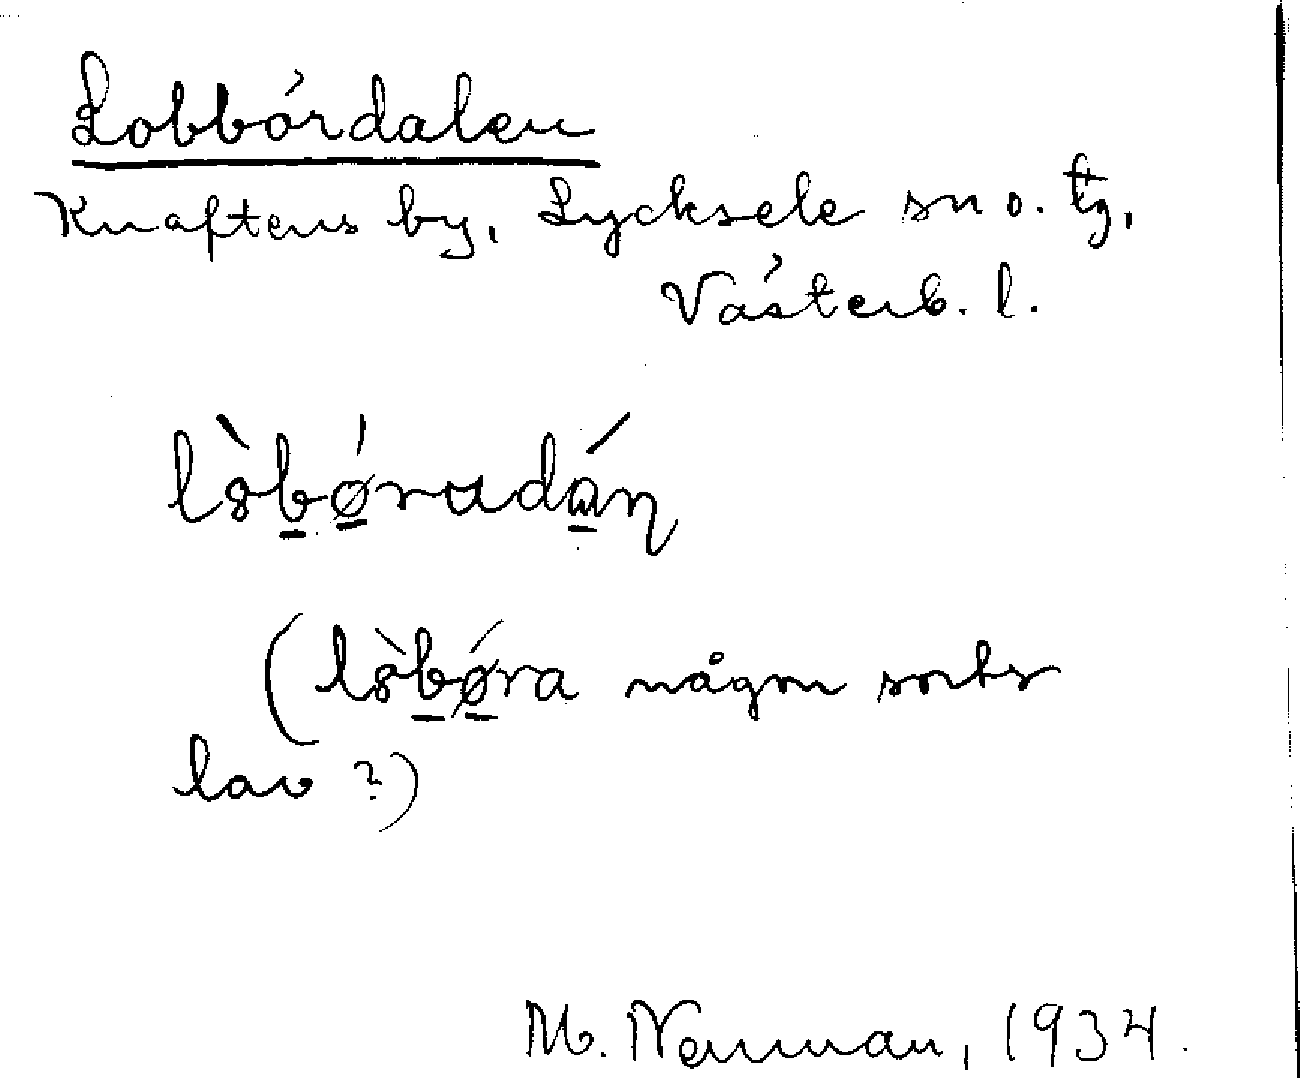 Lobbördalen
Knaftens by, Lycksele sn o. tg,
Västerb. l.
(lòbǿra någon sorts
lav ?)
M. Nenman, 1934.